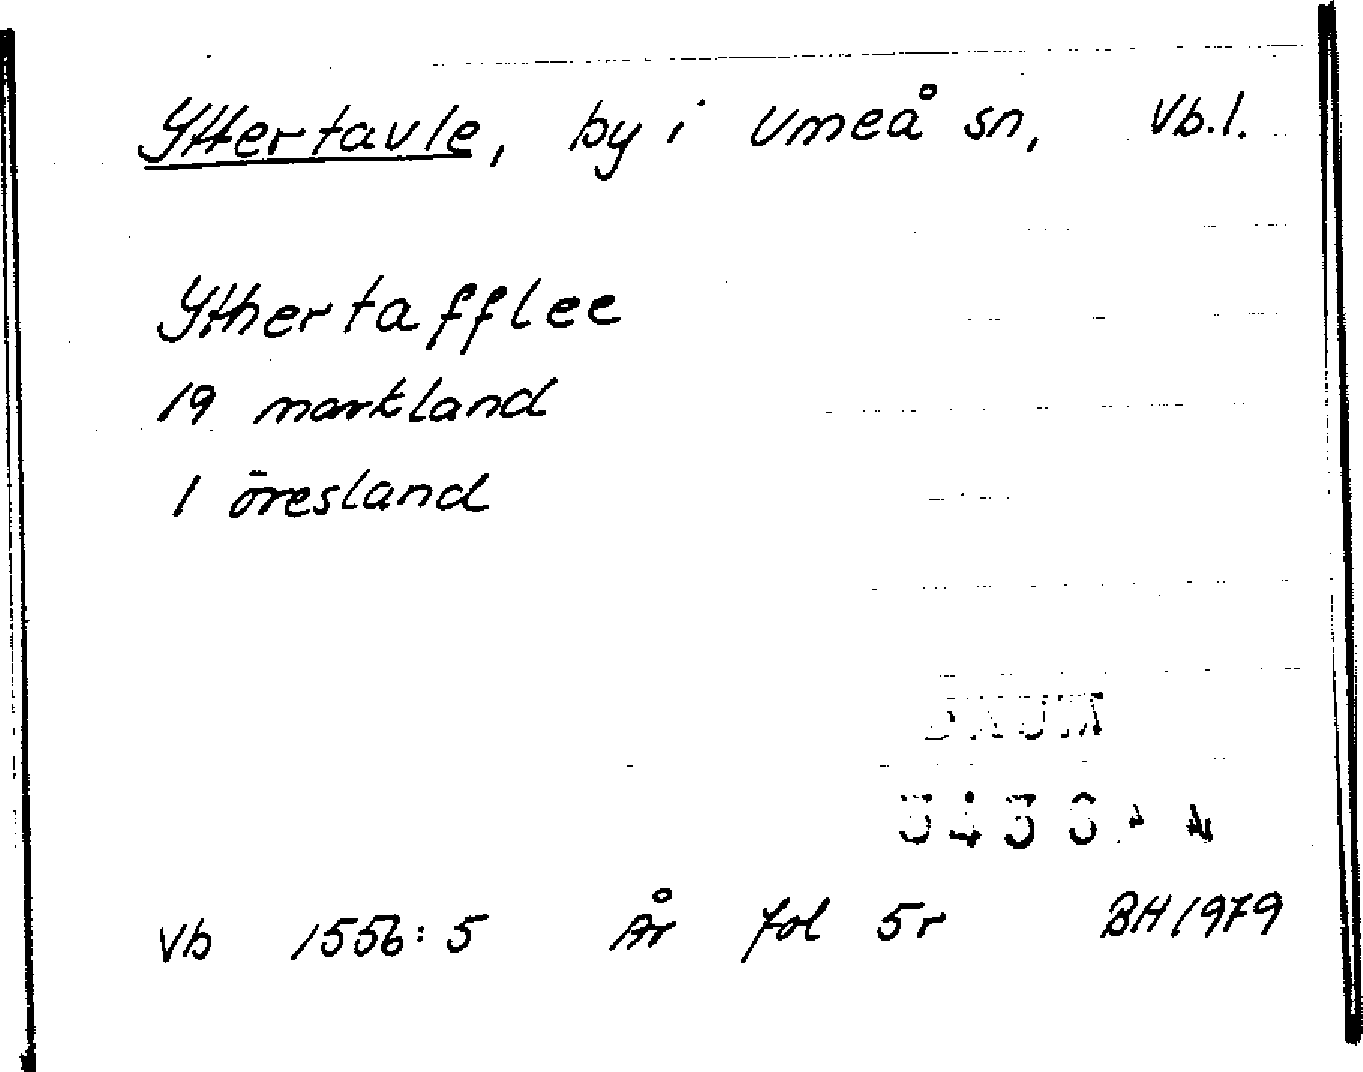 Yttertavle, by i Umeå sn, Vb.l.
Ythertafflee
19 markland
1 öresland
Vb 1556:5 År fol 5r BH1979